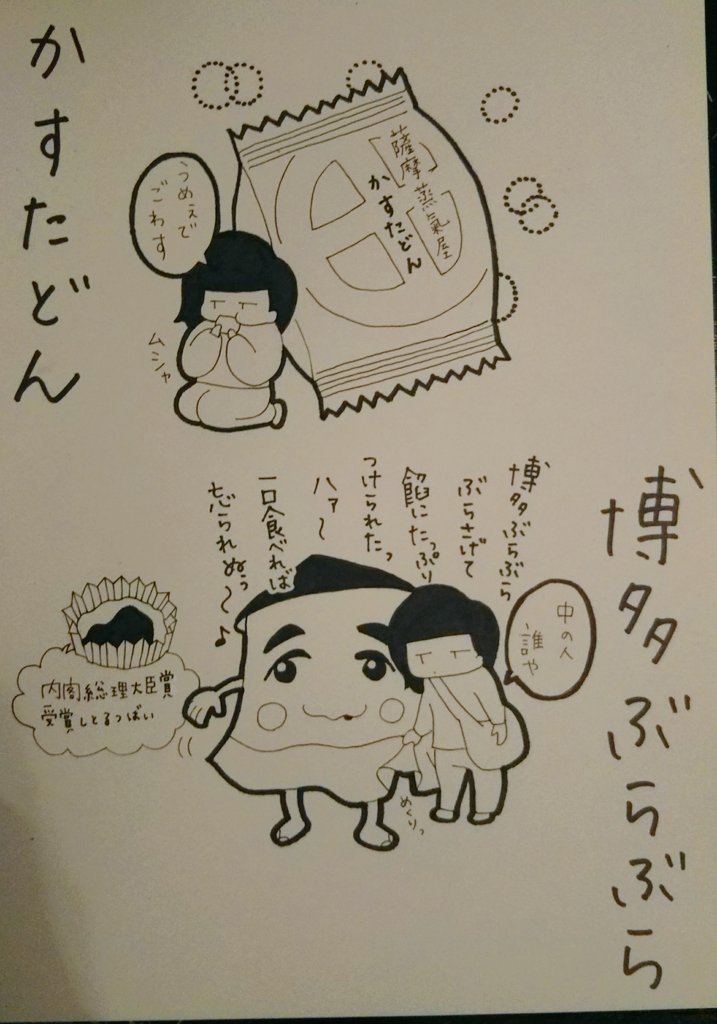 かすたどん
うめぇで
ごわす
薩摩蒸氣屋
かすたどん
ムシャ
博多ぶらぶら
博多ぶらぶら
ぶらさげて
餡にたっぷり
つけられたっ
ハァ〜
一口食べれば
忘られぬぅ〜♪
中の人
誰や
内閣総理大臣賞
受賞しとるっばい
めくりっ